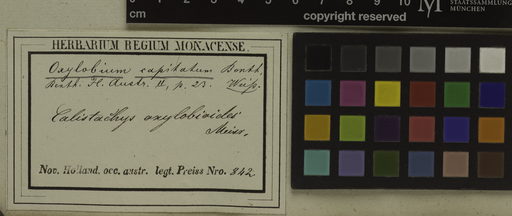 cm 5 6 7 8 9 10
copyright reserved
M STAATSSAMMLUNG
MÜNCHEN
HERBARIUM REGIUM MONACENSE.
Oxylobium capitatum Benth.
Benth. Fl. Austr. II, p. 23.
Calistachys oxylobioides
Meisn.
Nov. Holland. occ. austr. legt. Preiss Nro. 842.